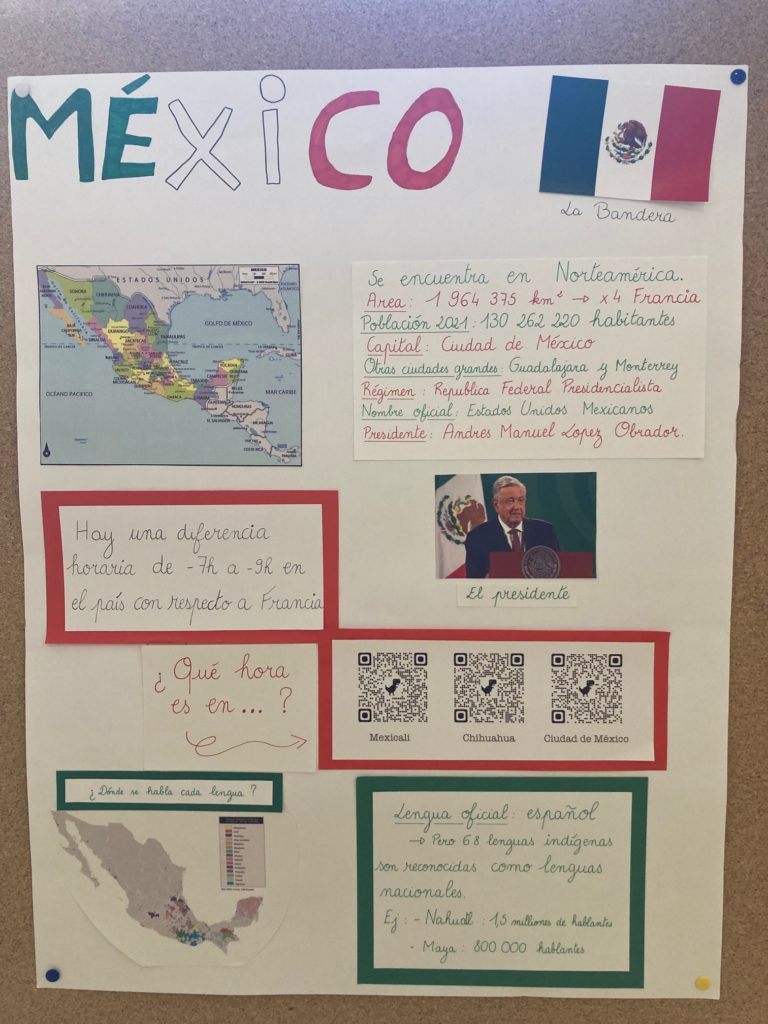 MÉXiCO
La Bandera
ESTADOS UNIDOS
MÉXICO
SONORA
CHIHUAHUA
COAHUILA
GOLFO DE MÉXICO
DURANGO
TAMAULIPAS
ZACATECAS
SINALOA
TRÓPICO DE CÁNCER
VERACRUZ
YUCATÁN
CAMPECHE
JALISCO
OAXACA
CUBA
BELIZE
HONDURAS
NICARAGUA
EL SALVADOR
COSTA RICA
OCÉANO PACIFICO
MAR CARIBE
Se encuentra en Norteamérica.
Area : 1 964 375 km² → x4 Francia
Población 2021 : 130 262 220 habitantes
Capital : Ciudad de México
Otras ciudades grandes : Guadalajara y Monterrey
Régimen : Republica Federal Presidencialista
Nombre oficial : Estados Unidos Mexicanos
Presidente : Andres Manuel Lopez Obrador.
El presidente
Hay una diferencia
horaria de -7h a -9h en
el país con respecto a Francia
¿Qué hora
es en... ?
Mexicali
Chihuahua
Ciudad de México
¿Dónde se habla cada lengua ?
Lengua oficial : español
→ Pero 68 lenguas indígenas
son reconocidas como lenguas
nacionales.
Ej : - Nahuatl : 1,5 milliones de hablantes
- Maya : 800 000 hablantes